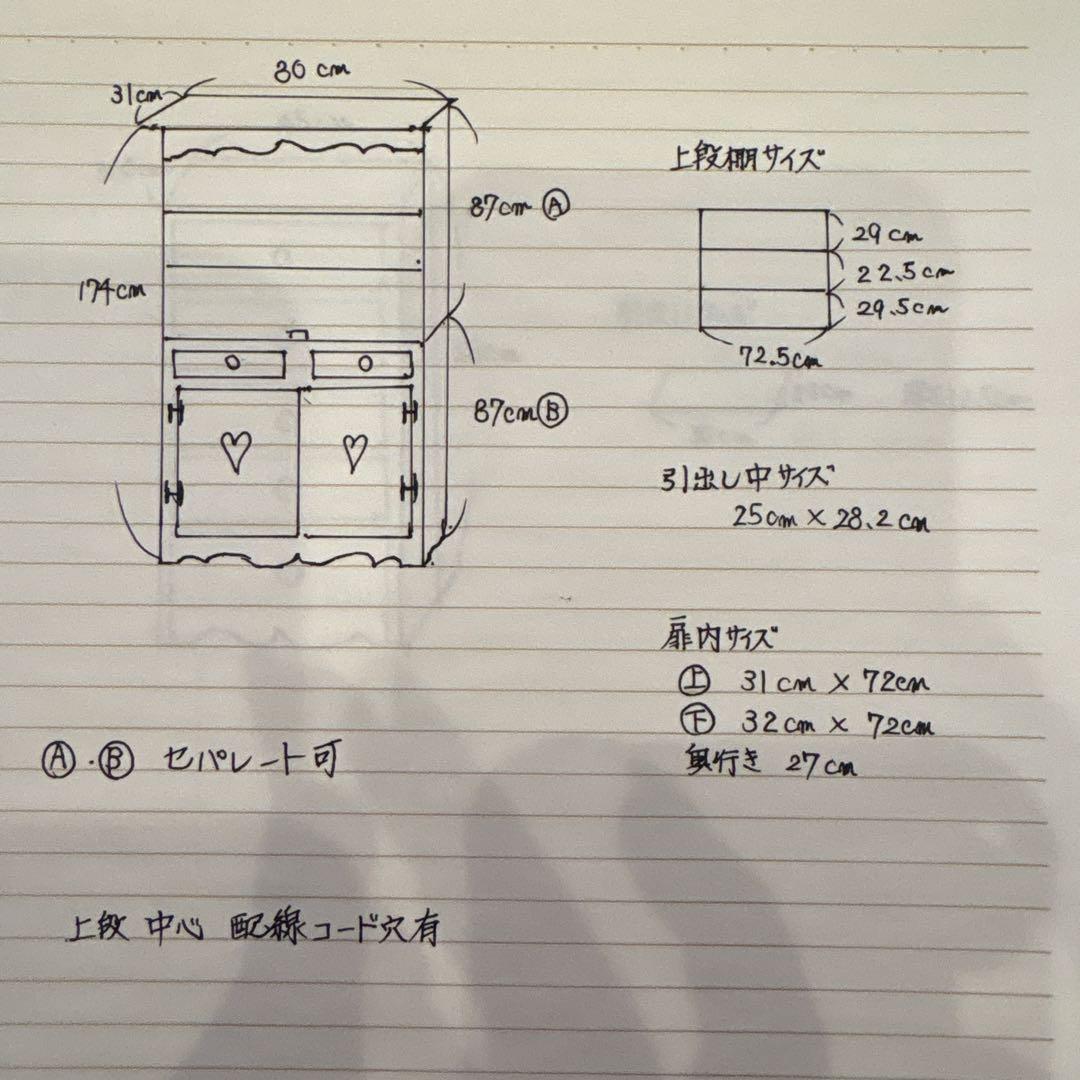 80 cm
31cm
87cm Ⓐ
174cm
87cm Ⓑ
上段棚サイズ
29 cm
22.5cm
29.5cm
72.5cm
引出し中サイズ
25cm × 28.2 cm
扉内サイズ
㊤ 31cm × 72cm
㊦ 32cm × 72cm
奥行き 27cm
Ⓐ・Ⓑ セパレート可
上段 中心 配線コード穴有